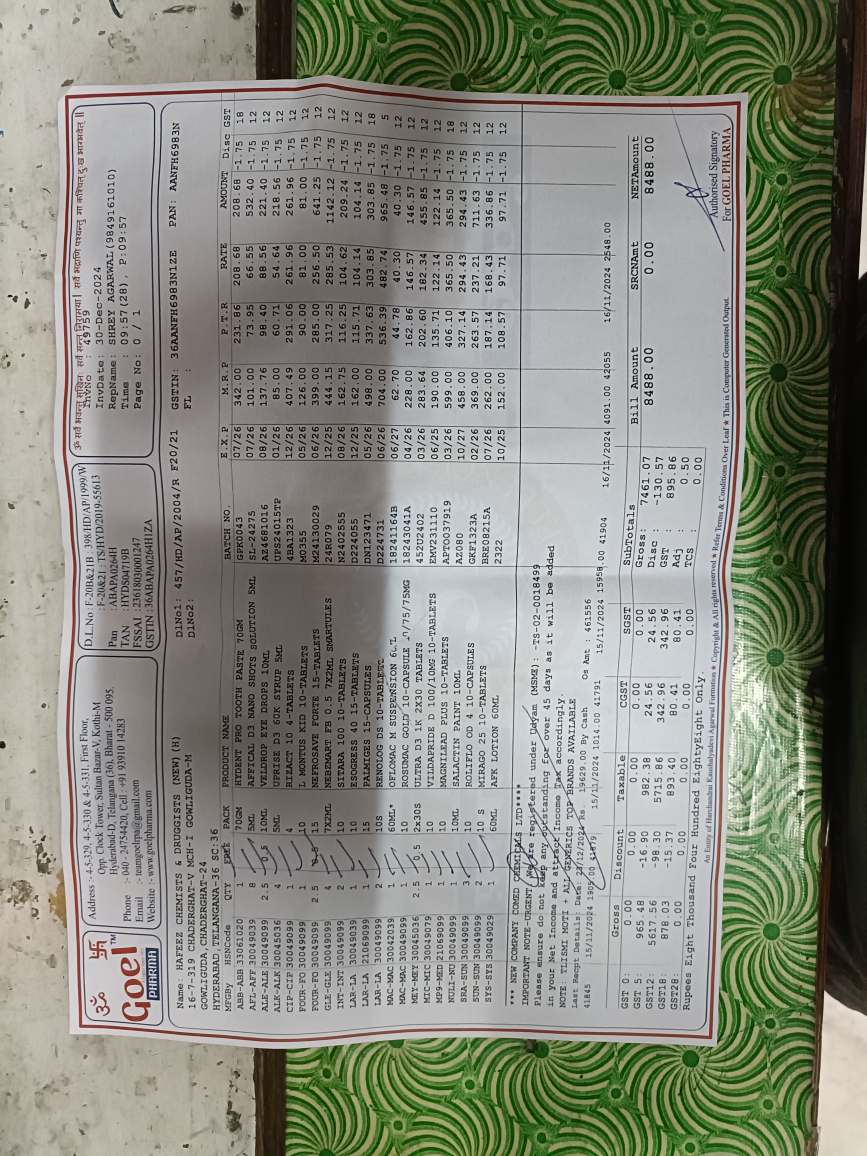 ॐ सर्वे भवन्तु सुखिनः सर्वे सन्तु निरामया। सर्वे भद्राणि पश्यन्तु मा कश्चित् दु ख भाग्भवेत् ॥
ॐ 卐
Goel™
PHARMA
Address :- 4-5-329, 4-5-330 & 4-5-331, First Floor,
Opp. Clock Tower, Sultan Bazar-V, Kothi-M
Hyderabad-D, Telangana (36), Bharat - 500 095.
Phone :- 040 - 24754420, Cell : +91 93910 14283
Email :- teamgoelrpa@gmail.com
Website :- www.goelpharma.com
D.L.No : F-20B&21B : 398/HD/AP/1999/W
: F-20&21 : TS/HYD/2019-55613
Pan : ABAPA0264H
TAN : HYDS04719B
FSSAI : 23618030001247
GSTIN : 36ABAPA0264H1ZA
InvNo : 49759
InvDate: 30-Dec-2024
RepName: SHREY AGARWAL(9849161010)
Time : 09:57(28), P:09:57
Page No: 0 / 1
Name: HAFEEZ CHEMISTS & DRUGGISTS (NEW) (H)
16-7-319 CHADERGHAT-V MCH-I GOWLIGUDA-M
GOWLIGUDA, CHADERGHAT-24
HYDERABAD, TELANGANA-36 SC:36
DlNo1: 457/HD/AP/2004/R F20/21
DlNo2:
GSTIN: 36AANFH6983N1ZE PAN: AANFH6983N
FL :
MFGBy HSNCode QTY FREE PACK PRODUCT NAME BATCH NO. E.X.P M.R.P P.T.R RATE AMOUNT Disc GST
ABB-ABB 33061020 1 70GM HYDENT PRO TOOTH PASTE 70GM GPK0043 07/26 342.00 231.86 208.68 208.68 -1.75 18
AFL-AFF 30049039 8 5ML AFFICAL D3 NANO SHOTS SOLUTION 5ML SL-24275 07/26 101.00 73.95 66.55 532.40 -1.75 12
ALE-ALE 30049099 2.5 0.5 10ML VELDROP EYE DROPS 10ML AZ4681016 08/26 137.76 98.40 88.56 221.40 -1.75 12
ALK-ALK 30045036 4 5ML UPRISE D3 60K SYRUP 5ML UPS24015TP 01/26 85.00 60.71 54.64 218.56 -1.75 12
CIP-CIP 30049099 1 4 RIZACT 10 4-TABLETS 4BA1323 12/26 407.49 291.06 261.96 261.96 -1.75 12
FOUR-FO 30049099 1 10 L MONTUS KID 10-TABLETS M0355 05/26 126.00 90.00 81.00 81.00 -1.75 12
FOUR-FO 30049099 2.5 0.5 15 NEFROSAVE FORTE 15-TABLETS M24130029 06/26 399.00 285.00 256.50 641.25 -1.75 12
GLE-GLE 30049099 4 7X2ML NEBZMART FB 0.5 7X2ML SMARTULES 24R079 12/25 444.15 317.25 285.53 1142.12 -1.75 12
INT-INT 30049099 2 10 SITARA 100 10-TABLETS N2402555 08/26 162.75 116.25 104.62 209.24 -1.75 12
LAR-LA 30049039 1 15 ESOGRESS 40 15-TABLETS D224055 12/25 162.00 115.71 104.14 104.14 -1.75 12
LAR-LA 21069099 1 15 PALMIGES 15-CAPSULES DN123471 05/26 498.00 337.63 303.85 303.85 -1.75 18
LAR-LA 30049099 2 10S RENOLOG DS 10-TABLETS D224731 06/26 704.00 536.39 482.74 965.48 -1.75 5
MAC-MAC 30042039 1 60ML* OFLOMAC M SUSPENSION 18241164B 06/27 62.70 44.78 40.30 40.30 -1.75 12
MAC-MAC 30049099 1 10 ROSUMAC GOLD 10-CAPSULE /75/75MG 18243041A 04/26 228.00 162.86 146.57 146.57 -1.75 12
MEY-MEY 30045036 2.5 0.5 2x30S ULTRA D3 1K 2X30 TABLETS 452U2402 03/26 283.64 202.60 182.34 455.85 -1.75 12
MIC-MIC 30049079 1 10 VILDAPRIDE D 100/10MG 10-TABLETS EMV231110 06/25 190.00 135.71 122.14 122.14 -1.75 12
MP9-MED 21069099 1 10 MAGNILEAD PLUS 10-TABLETS APT0037919 03/26 599.00 406.10 365.50 365.50 -1.75 18
NULI-NU 30049099 1 10ML SALACTIN PAINT 10ML AZ080 10/27 458.00 327.14 294.43 294.43 -1.75 12
SRA-SUN 30049099 3 10 ROLIFLO OD 4 10-CAPSULES GKF1323A 02/26 369.00 263.57 237.21 711.63 -1.75 12
SUN-SUN 30049099 2 10 S MIRAGO 25 10-TABLETS BRE08215A 07/26 262.00 187.14 168.43 336.86 -1.75 12
SYS-SYS 30049029 1 60ML AFK LOTION 60ML 2322 10/25 152.00 108.57 97.71 97.71 -1.75 12
*** NEW COMPANY COMED CHEMICALS LTD****
IMPORTANT NOTE-URGENT, We are registered under Udyam (MSME): -TS-02-0018499
Please ensure do not keep any outstanding for over 45 days as it will be added
in your Net Income and attract Income Tax accordingly.
NOTE: TLISMI MOTI + ALL GENERICS TOP BRANDS AVAILABLE
Last Recpt Details: Date: 23/12/2024 Rs. 19629.00 By Cash Os Amt : 461556
41845 15/11/2024 1905.00 41879 15/11/2024 1014.00 41791 15/11/2024 15958.00 41904 16/11/2024 4091.00 42055 16/11/2024 2548.00
Gross Discount Taxable CGST SGST SubTotals Bill Amount SRCNAmt NETAmount
GST 0: 0.00 0.00 0.00 0.00 0.00 Gross: 7461.07 8488.00 0.00 8488.00
GST 5: 965.48 -16.90 982.38 24.56 24.56 Disc : -130.57
GST12: 5617.56 -98.30 5715.86 342.96 342.96 GST : 895.86
GST18: 878.03 -15.37 893.40 80.41 80.41 Adj : 0.50
GST28: 0.00 0.00 0.00 0.00 0.00 TCS : 0.00
Rupees Eight Thousand Four Hundred EightyEight Only.
Authorised Signatory
For GOEL PHARMA
An Entity of Harchandrai Kaushalyadevi Agarwal Formation ★ Copyright & All rights reserved ★ Refer Terms & Conditions Over Leaf ★ This is Computer Generated Output.